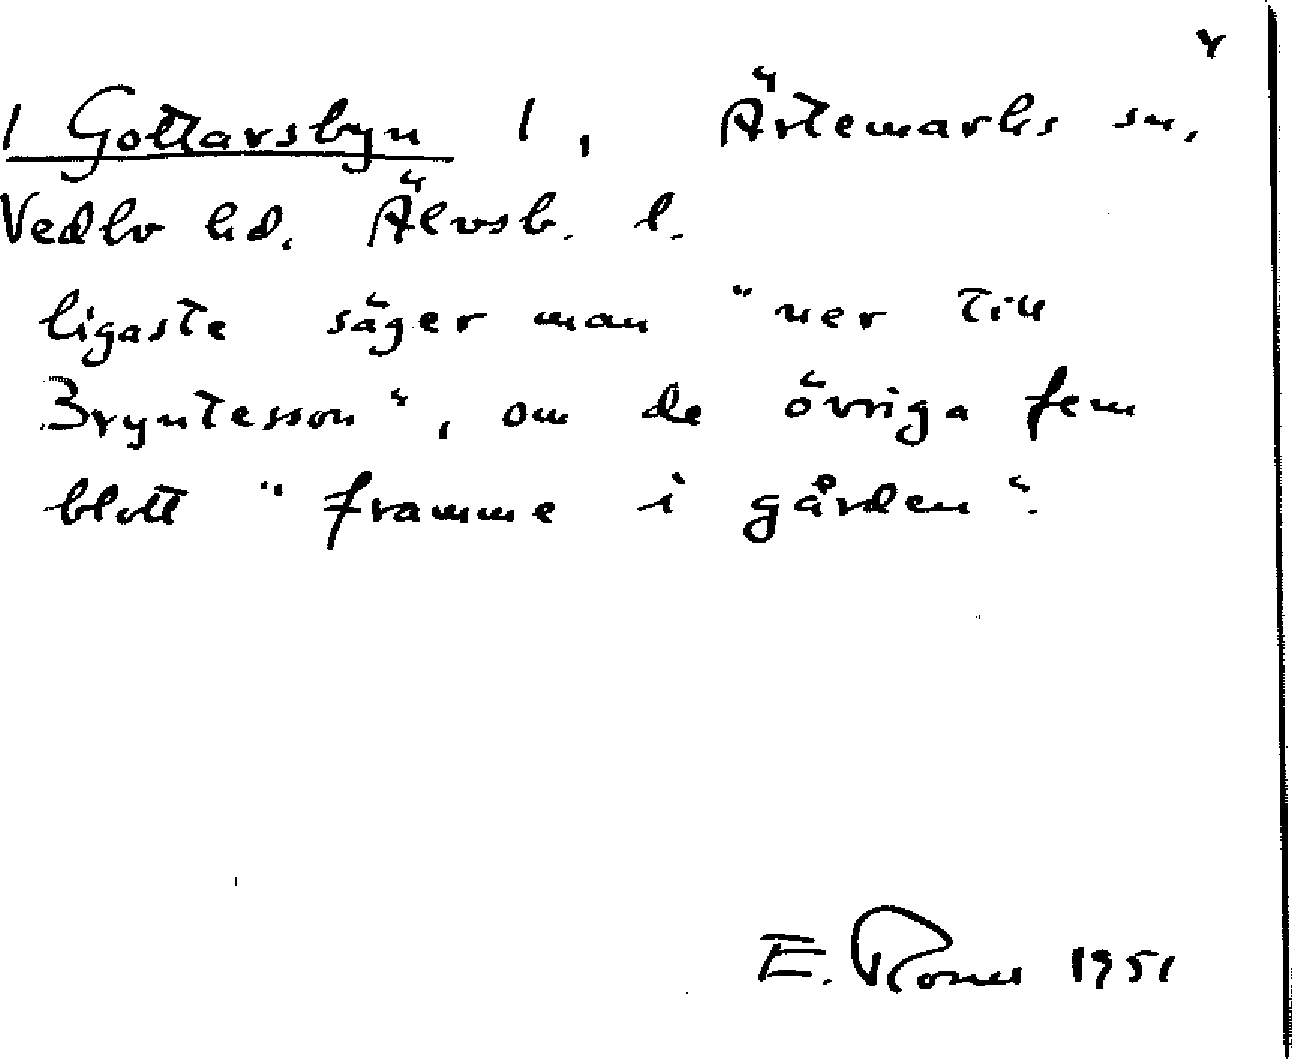 / Gottarsbyn /, Ärtemarks sn.
Vedbo hd. Älvsb. l.
ligaste säger man "ner till
Bryntesson", om de övriga fem
blott "framme i gården".
E. 1951